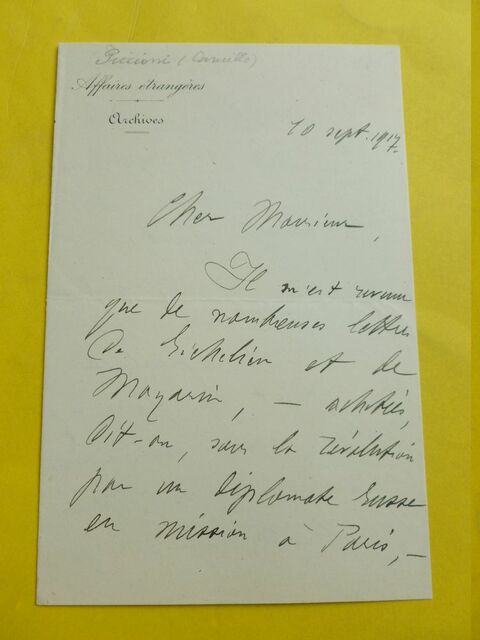 Piccioni (Camille)
Affaires étrangères
Archives
10 sept. 1917.
Cher Monsieur,
Il m'est revenu
que de nombreuses lettres
de Richelieu et de
Mazarin, — achetées,
dit-on, sous la Révolution
par un diplomate russe
en mission à Paris, —